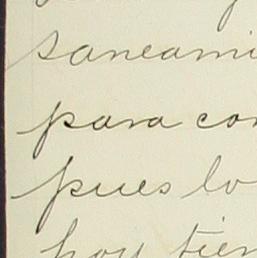 saneami
para con
pues lo
hoy tien